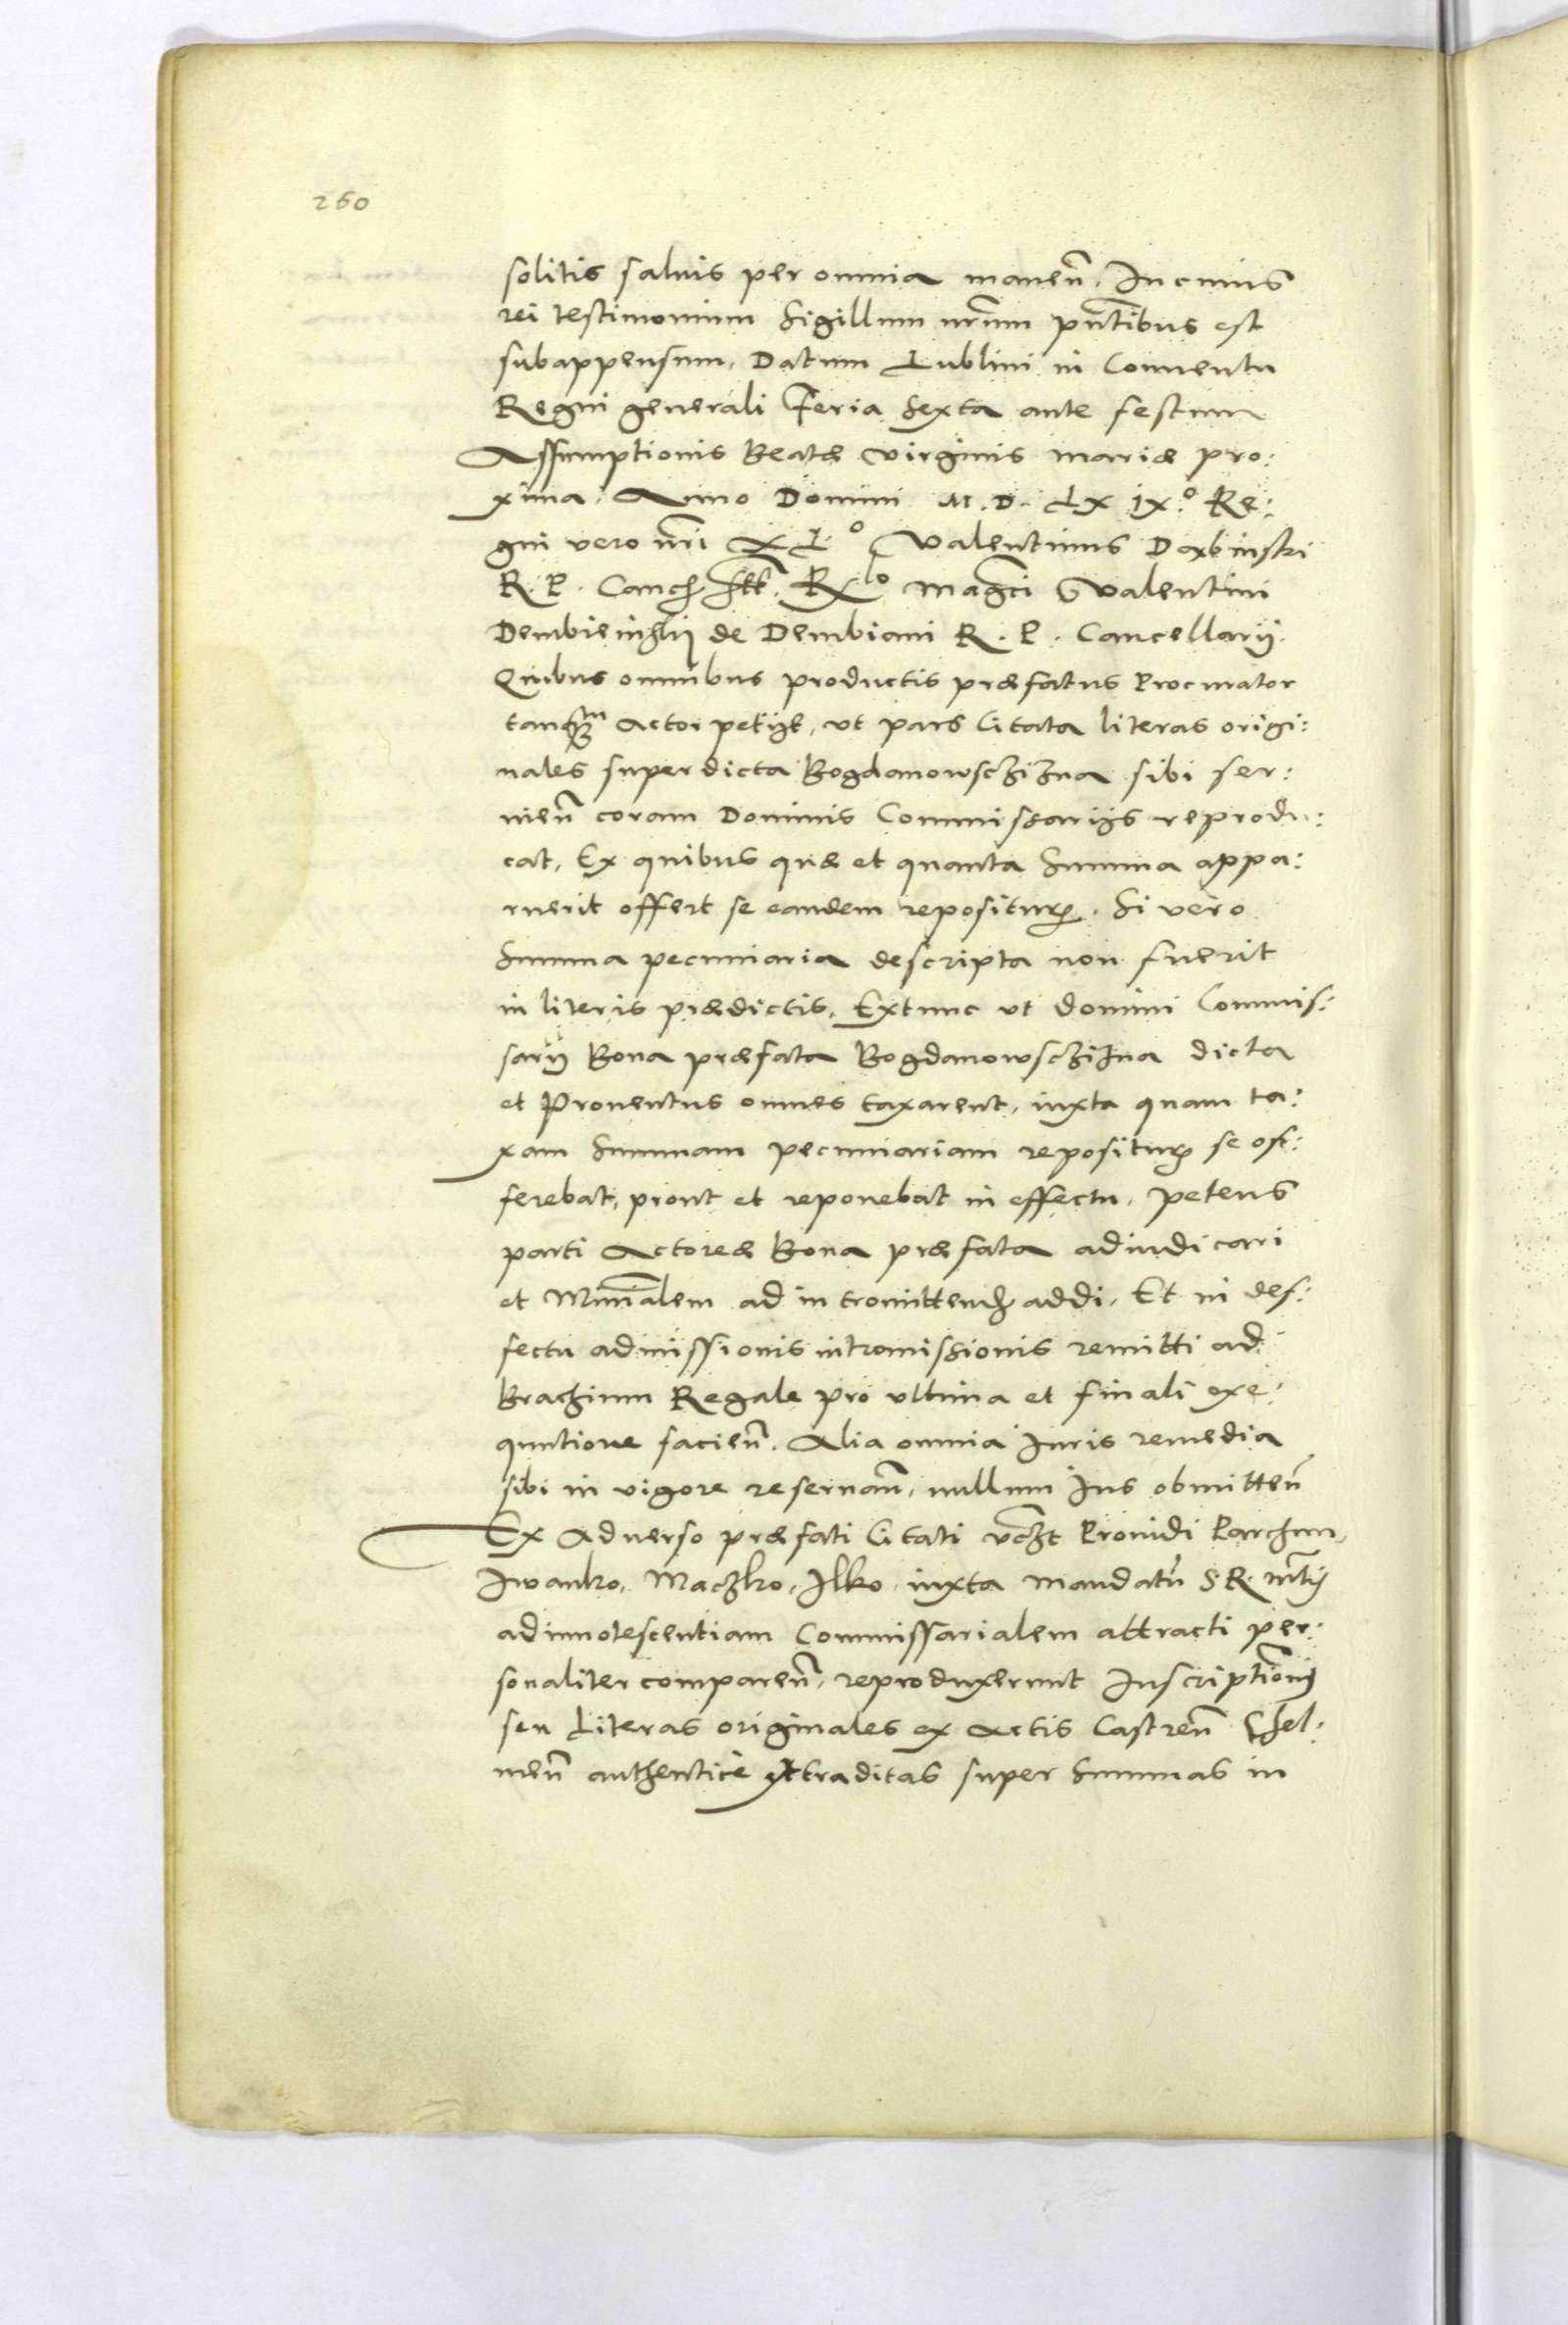 260
solitis saluis per omnia maneñ. In cuius
rei testimonium Sigillum nrm̃m pñtibus est
subappensum. Datum Lublini in Conuentu
Regni generali Feria Sexta ante festum
Assumptionis Beatæ Virginis Mariæ pro:
xima. Anno Domini M.D. LX IX.º Re:
gni vero nr̃i XLº Valentinus Dexbinski
R. P. Canc. sst. Rlo Magc̃i Valentini
Dembieinskij de Dembiani R. P. Cancellarij.
Quibus omnibus productis præfatus Procurator
tanq̃m Actor petijt, vt pars Citata literas origi:
nales super dicta Bogdanowsczizna sibi ser:
uieñ coram Dominis Commissarijs reprodu:
cat, Ex quibus quæ et quanta Summa appa:
ruerit offert se eandem repositur. Si vero
Summa pecuniaria descripta non fuerit
in literis prædictis, Extunc vt domini Commis:
sarij Bona præfata Bogdanowsczizna dicta
et Prouentus omnes taxarent, iuxta quam ta:
xam Summam pecuniariam repositur se of:
ferebat, prout et reponebat in effectu, petens
parti Actoreæ Bona præfata adiudicari
et Minr̃alem ad intromittend addi, Et in def:
fectu admissionis intromissionis remitti ad
Brachium Regale pro vltima et finali exe:
quutione facieñ. Alia omnia Iuris remedia
sibi in vigore reseruañ, nullum Ius obmitteñ
Ex Aduerso præfati Citati vczt Prouidi Parchun,
Iwanko, Maczko, Ilko, iuxta mandatũ S. R. Mtis
ad innotescentiam Commissarialem attracti per:
sonaliter compareñ, reproduxerunt Inscriptionis
seu Literas originales ex Actis Castreñ Chel:
meñ authentice extraditas super Summas in